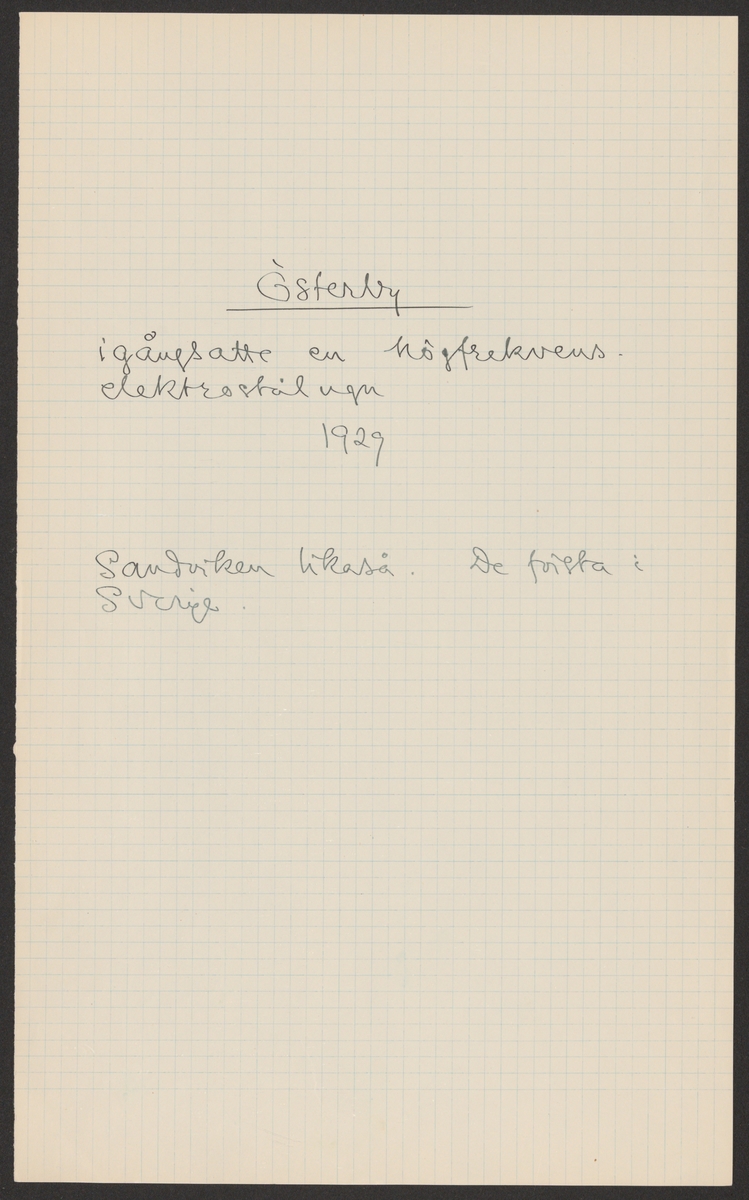 Österby
igångsatte en högfrekvens-
elektrostålugn
1929
Sandviken likaså. De första i
Sverige.